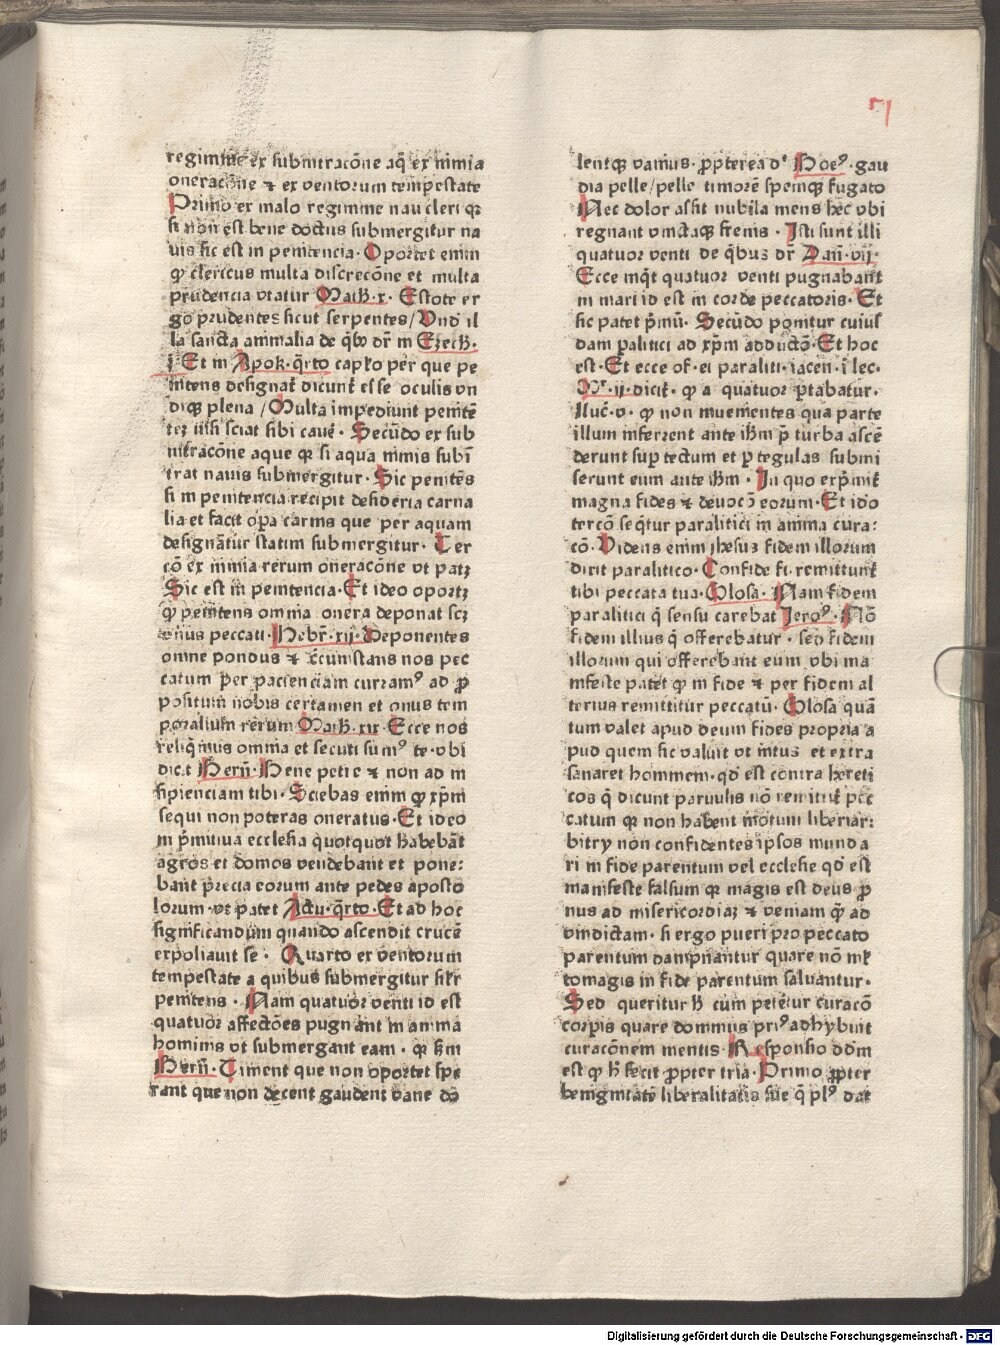 51
regimine ex submtracōne aq̄ ex nimia
oneracōne ⁊ ex ventorum tempestate
Primo ex malo regimine naucleri qꝛ
si non est bene doctus submergitur na
uis sic est in penitencia· Oportet enim
ꝙ clericus multa discrecōne et multa
prudencia vtatur Math·x· Estote er
go prudentes sicut serpentes/Vnd̄ il
la sancta animalia de qb̄ꝫ dr̄ in Ezech·
j· Et in Apok·q̄rto capło per que pe
nitens designat̄ dicunt̄ esse oculis vn
diqꝫ plena /Multa impediunt penitē
teꝫ nisi sciat sibi caue᷑· Secūdo ex sub
intracōne aque qꝛ si aqua nimis subī
trat nauis submergitur· Sic penitēs
si in penitencia recipit desideria carna
lia et facit oꝑa carnis que per aquam
designātur statim submergitur· Ter
cō ex nimia rerum oneracōne vt patꝫ
Sic est in penitencia· Et ideo oportꝫ
ꝙ penitens omnia onera deponat scꝫ
onus peccati· Hebr̄·xij· Deponentes
omne pondus ⁊ c̄cumstans nos pec
catum per pacienciam curramꝰ ad ꝓ
positum nobis certamen et onus tem
poralium rerum Math·xix· Ecce nos
reliq̄mus omnia et secuti sumꝰ te· vbi
dicit Bern̄· Bene petre ⁊ non ad in
sipienciam tibi· Sciebas enim ꝙ xp̄m
sequi non poteras oneratus· Et ideo
in p̄mitiua ecclesia quotquot habebāt
agros et domos vendebant et pone:
bant precia eorum ante pedes aposto
lorum· vt patet Actu·q̄rto· Et ad hoc
significandum quando ascendit crucē
expoliauit se· Quarto ex ventorum
tempestate a quibus submergitur sil̄r
penitens· Nam quatuor venti id est
quatuor affectōes pugnant in anima
hominis vt submergant eam· qꝛ sc̄m
Bern̄· Timent que non oportet spe
rant que non decent gaudent vane do
lentqꝫ vanius· ꝓpterea dʳ Boeꝰ· gau
dia pelle/pelle timorē spemqꝫ fugato
Nec dolor assit nubila mens hec vbi
regnant vinctaqꝫ frenis· Isti sunt illi
quatuor venti de q̄bus dr̄ Dan̄·vij·
Ecce inq̄t quatuor venti pugnabant
in mari id est in corde peccatoris· Et
sic patet p̄mū· Secūdo ponitur cuius
dam ꝑalitici ad xp̄m adductō· Et hoc
est· Et ecce of· ei paraliti· iacen· ī lec·
Mʳ·ij· dicit̄· ꝙ a quatuor ꝑtabatur·
Luc̄·v· ꝙ non inuenientes qua parte
illum inferrent ante ih̄m p̄ turba ascē
derunt suꝑ tectum et ꝑ tegulas submi
serunt eum ante ih̄m· In quo exp̄mit̄
magna fides ⁊ deuocō eorum· Et ido
tercō seq̄tur paralitici in anima cura:
cō· Videns enim jhesus fidem illorum
dixit paralitico· Confide fi· remittunt̄
tibi peccata tua· Glosa· Nam fidem
paralitici q̄ sensu carebat Jeroꝰ· Nō
fidem illius q̄ offerebatur· sed fidem
illorum qui offerebant eum vbi ma
nifeste patet ꝙ in fide ⁊ per fidem al
terius remittitur peccatū· Glosa quā
tum valet apud deum fides propria a
pud quem sic valuit vt intus et extra
sanaret hominem· qd̄ est contra hereti
cos q̄ dicunt paruulis nō remittit̄ pec
catum qꝛ non habent motum liberiar:
bitry non confidentes ipsos munda
ri in fide parentum vel ecclesie qd̄ est
manifeste falsum qꝛ magis est deus ꝓ
nus ad misericordiaꝫ ⁊ veniam q̄ ad
vindictam· si ergo pueri pro peccato
parentum dampnantur quare nō ml̄
tomagis in fide parentum saluantur·
Sed queritur h̄ cum petētur curacō
corꝑis quare dominus priꝰ adhybuit
curacōnem mentis· Responsio ddm
est ꝙ h̄ fecit ꝓpter tria· Primo ꝓpter
benignitatē liberalitatis sue q̄ plꝰ dat
Digitalisierung gefördert durch die Deutsche Forschungsgemeinschaft - DFG